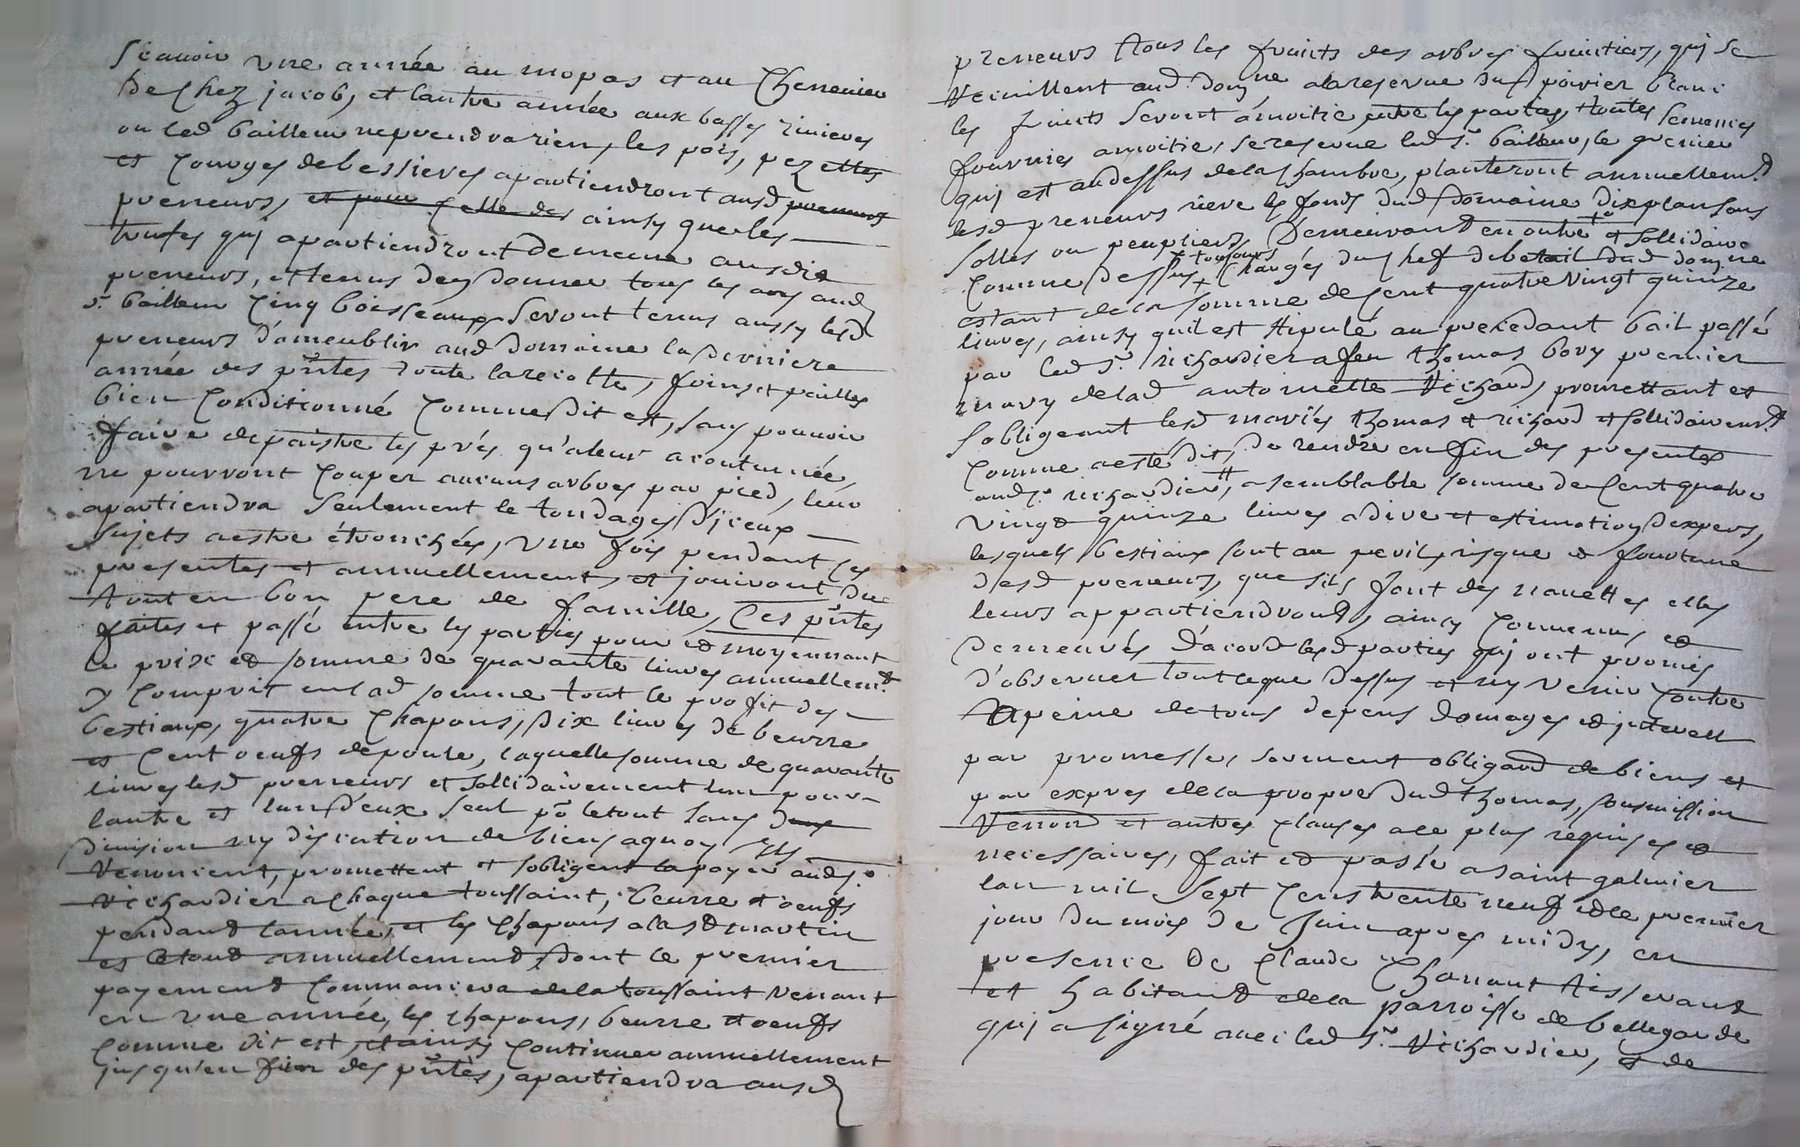 scavoir une année au mopas et au Chenevier
de chez jacob, et lautre année aux basses rivieres
ou led bailleur neprendra rien, les pois, pezettes
et courges debessieres apartiendront ausd preneurs
preneurs, et pour celle des ainsy queles
trufes quj apartiendront de mesme ausdis
preneurs, et tenus den donner tous les ans aud
sr bailleur cinq boisseaux seront tenus aussy lesd
preneurs d'ameublir aud domaine la derniere
année des pntes toute larecolte, foins et pailles
bien conditionné comme dit est, sans pouvoir
faire depaistre les prés qu'aleur acoutumée,
ne pourront couper aucuns arbres par pied, leur
apartiendra seulement le tondages djceux
sujets aestre étronchées, une fois pendant ces
presentes et annuellement, et jouiront du
tout en bon pere de famille, Ces pntes
faites et passé entre les parties pour et moyennant
le prix et somme de quarante livres annuellemt
y comprit enlad somme tout le profit des
bestiaux, quatre chapons, dix livres de beurre
et cent oeufs depoule, laquelle somme de quarante
livres lesd preneurs et sollidairement lun pour
lautre et lun deux seul po letout sans
division ny discution de biens aquoy ils
renoncent, promettent et sobligent lapayer audsr
richardier achaque toussaint, beurre et oeufs
pendant lannée, et les chapons alast martin
et letout annuellement, dont le premier
payement commancera dela toussaint venant
en une année, les chapons, beurre et oeufs
comme dit est, et ainsy continuer annuellement
jusqu'en fin des pntes, apartiendra ausd
preneurs tous les fruits des arbres fruitiers, quj se
recuillent aud domne alareserve du poirier blanc
les fruits seront amoitié entre les parties, toutes semences
fournies amoitié, sereserve led sr bailleur, le grenier
quj est audessus dela chambre, planteront annuellemt
lesd preneurs rieve les fonds dud domaine dix plansons
solles ou peupliers, Demeurant en outre et sollidaire
comme dessus toujours chargés du chef de betail dud domne
estant dela somme de cent quatre vingt quinze
livres, ainsy quil est stipulé au precedant bail passé
par led sr richardier a feu thomas bory premier
mary delad antoinette richard, promettant et
sobligeant lesd mariés thomas et richard et sollidairemt
comme aesté dit, de rendre enfin des presentes
audsr richardier, asemblable somme de cent quatre
vingt quinze livres adire et estimation dexpers,
lesquels bestiaux sont au peril, risque et fourtune
desd preneurs, que sils font des navettes elles
leurs appartiendront, ainsy convenus et
demeurés dacord lesd parties quj ont promis
d'observer tout ceque dessus et ny venir contre
Apeine detous depens domages et jnterets
par promesses, serment obligaon debiens et
par expres dela propre dud thomas, sousmission
renond et autres clauses ace plus requises et
necessaires, fait et passé asaint galmier
lan mil sept cens trente neuf et le premier
jour du mois de Juin apres midy, en
presence de claude Tisserant
et habitant dela parroisse de bellegarde
quj a signé avec led sr richardier, et de